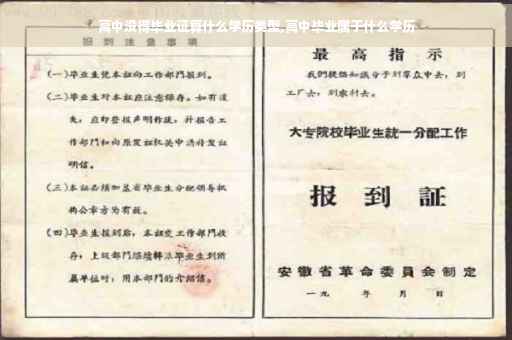 高中没得毕业证算什么学历类型,高中毕业属于什么学历
报到注意事项
(一)毕业生凭本证向工作部门报到。
(二)毕业生对本证应注意保存。如有遗
失,应即登报声明作废,并报告工
作部门和向原发证机关申请补发证
明信。
(三)本证必须加盖省毕业生分配领导机
构公章方为有效。
(四)毕业生报到后,本证交工作部门收
存;上级部门继续转派毕业生到所
属单位时,用本部门的介绍信。
最高指示
我们提倡知识分子到群众中去,到
工厂去,到农村去。
大专院校毕业生統一分配工作
报到証
安徽省革命委員会制定
一九 年 月 日